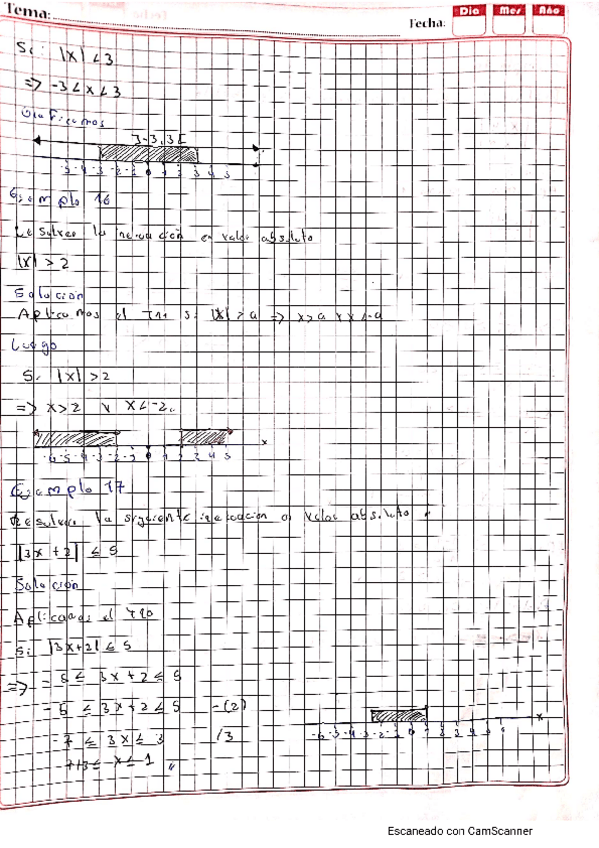 Tema:
Fecha:
Dia Mes Año
Si: |x| < 3
=> -3 < x < 3
Graficamos
]-3,3[
-5 -4 -3 -2 -1 0 1 2 3 4 5
Ejemplo 16
Resolver la inecuación en valor absoluto
|x| > 2
Solución
Aplicamos el T11 si |x| > a => x > a v x < -a
Luego
Si |x| > 2
=> x > 2 v x < -2.
-6 -5 -4 -3 -2 -1 0 1 2 3 4 5 x
Ejemplo 17
Resolver la siguiente inecuación en valor absoluto
|3x + 2| ≤ 5
Solución
Aplicamos el T10
Si |3x+2| ≤ 5
=> -5 ≤ 3x + 2 ≤ 5
-5 ≤ 3x + 2 ≤ 5 -(2)
-7 ≤ 3x ≤ 3 /3
-7/3 ≤ x ≤ 1
-6 -5 -4 -3 -2 -1 0 1 2 3 4 5 6 x
Escaneado con CamScanner